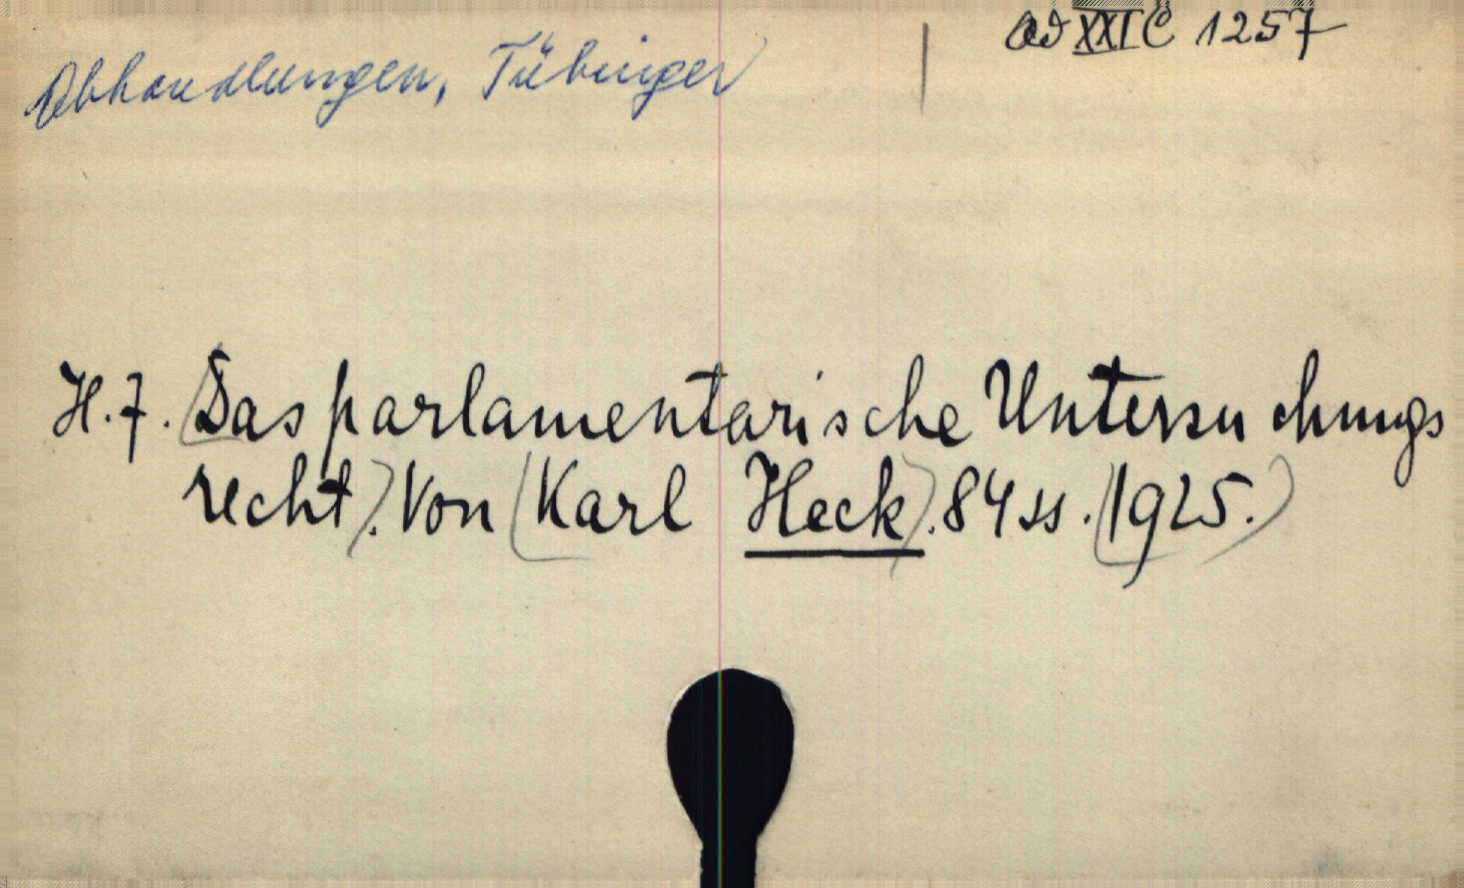 ad XXI C 1257
Abhandlungen, Tübinger
H. 7. (Das parlamentarische Untersuchungs
recht). Von (Karl Heck). 84 ss. (1925.)